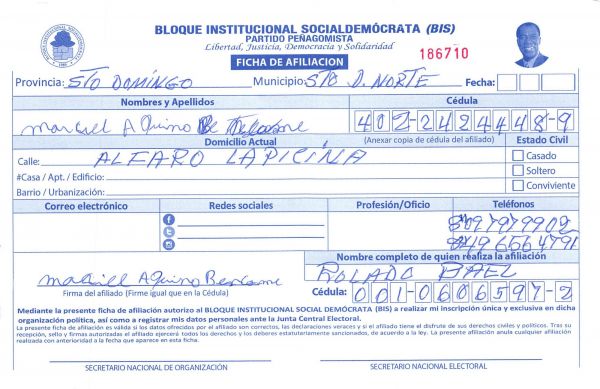 BLOQUE INSTITUCIONAL SOCIALDEMÓCRATA (BIS)
PARTIDO PEÑAGOMISTA
Libertad, Justicia, Democracia y Solidaridad
186710
FICHA DE AFILIACION
Provincia: STO DOMINGO Municipio: STO D. NORTE Fecha:
Nombres y Apellidos Cédula
Marciel Aquino De 402-2424448-9
Domicilio Actual (Anexar copia de cédula del afiliado) Estado Civil
Calle: ALFARO LAPICINA Casado
#Casa / Apt. / Edificio: Soltero
Barrio / Urbanización: Conviviente
Correo electrónico Redes sociales Profesión/Oficio Teléfonos
8097979902
849 656 4791
Nombre completo de quien realiza la afiliación
Aquino ROLADO BAEZ
Firma del afiliado (Firme igual que en la Cédula) Cédula: 001-0606597-2
Mediante la presente ficha de afiliación autorizo al BLOQUE INSTITUCIONAL SOCIAL DEMÓCRATA (BIS) a realizar mi inscripción única y exclusiva en dicha
organización política, así como a registrar mis datos personales ante la Junta Central Electoral.
La presente ficha de afiliación es válida si los datos ofrecidos por el afiliado son correctos, las declaraciones veraces y si el afiliado tiene el disfrute de sus derechos civiles y políticos. Tras su
recepción, sello y firmas autorizadas el afiliado ejercerá todos los derechos y los deberes estatutariamente sancionados, de acuerdo a la ley. La presente afiliación anula cualquier afiliación
realizada con anterioridad a la fecha que aparece en esta ficha.
SECRETARIO NACIONAL DE ORGANIZACIÓN SECRETARIO NACIONAL ELECTORAL